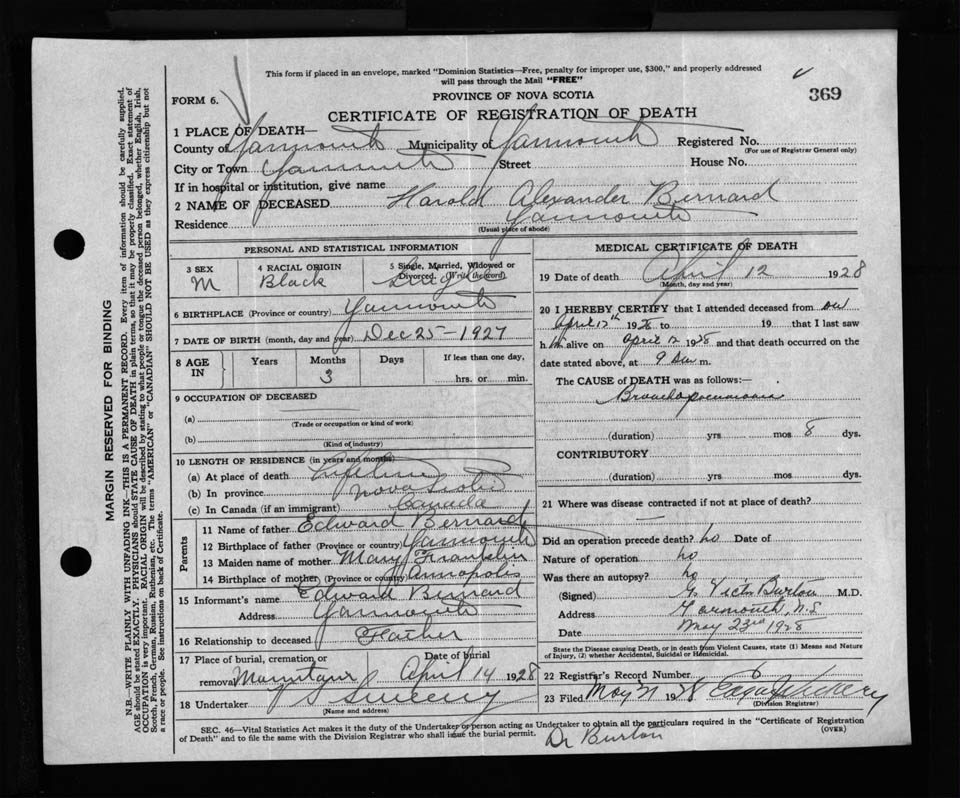 This form if placed in an envelope, marked "Dominion Statistics—Free, penalty for improper use, $300," and properly addressed
will pass through the Mail "FREE"
369
FORM 6.
PROVINCE OF NOVA SCOTIA
CERTIFICATE OF REGISTRATION OF DEATH
1 PLACE OF DEATH—
County of Yarmouth Municipality of Yarmouth Registered No.
(For use of Registrar General only)
City or Town Yarmouth Street House No.
If in hospital or institution, give name
2 NAME OF DECEASED Harold Alexander Bernard
Residence Yarmouth
(Usual place of abode)
PERSONAL AND STATISTICAL INFORMATION
3 SEX 4 RACIAL ORIGIN 5 Single, Married, Widowed or
Divorced. (Write the word)
M Black Single
6 BIRTHPLACE (Province or country) Yarmouth
7 DATE OF BIRTH (month, day and year) Dec 25—1927
8 AGE IN Years Months Days If less than one day,
3 hrs. or min.
9 OCCUPATION OF DECEASED
(a)
(Trade or occupation or kind of work)
(b)
(Kind of industry)
10 LENGTH OF RESIDENCE (in years and months)
(a) At place of death Lifetime
(b) In province Nova Scotia
(c) In Canada (if an immigrant) Canada
Parents
11 Name of father Edward Bernard
12 Birthplace of father (Province or country) Yarmouth
13 Maiden name of mother Mary Franklin
14 Birthplace of mother (Province or country) Annapolis
15 Informant's name Edward Bernard
Address Yarmouth
16 Relationship to deceased Father
17 Place of burial, cremation or Date of burial
removal April 14 1928
18 Undertaker Sweeny
(Name and address)
MEDICAL CERTIFICATE OF DEATH
19 Date of death April 12 1928
(Month, day and year)
20 I HEREBY CERTIFY that I attended deceased from on
April 12th 1928 to 19 that I last saw
h im alive on April 12 1928 and that death occurred on the
date stated above, at 9 m.
The CAUSE of DEATH was as follows:—
Bronchopneumonia
(duration) yrs mos 8 dys.
CONTRIBUTORY
(duration) yrs mos dys.
21 Where was disease contracted if not at place of death?
Did an operation precede death? no Date of
Nature of operation no
Was there an autopsy? no
(Signed) G. Victor Burton M.D.
Address Yarmouth, N.S
Date May 23rd 1928
State the Disease causing Death, or in death from Violent Causes, state (1) Means and Nature
of Injury, (2) whether Accidental, Suicidal or Homicidal.
22 Registrar's Record Number
23 Filed May 1928
(Division Registrar)
SEC. 46—Vital Statistics Act makes it the duty of the Undertaker or person acting as Undertaker to obtain all the particulars required in the "Certificate of Registration
of Death" and to file the same with the Division Registrar who shall issue the burial permit.
(OVER)
Dr Burton
MARGIN RESERVED FOR BINDING
N.B.—WRITE PLAINLY WITH UNFADING INK—THIS IS A PERMANENT RECORD. Every item of information should be carefully supplied.
AGE should be stated EXACTLY. PHYSICIANS should STATE CAUSE OF DEATH in plain terms, so that it may be properly classified. Exact statement of
OCCUPATION is very important. RACIAL ORIGIN will be described by stating to what people or tongue the deceased person belonged, whether English, Irish,
Scotch, French, German, Russian, Ruthenian, etc. The terms "AMERICAN" or "CANADIAN" SHOULD NOT BE USED as they express citizenship but not
a race or people. See instructions on back of Certificate.